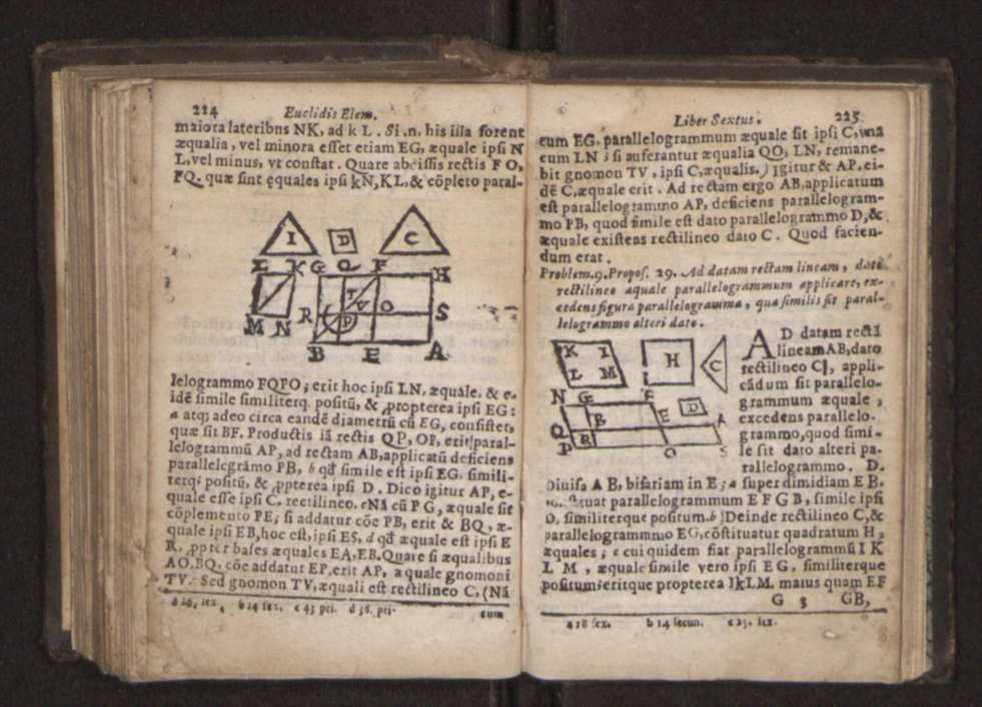 224 Euclidis Elem.
maiora lateribns NK, ad k L. Si.n, his illa forent
æqualia, vel minora esset etiam EG, æquale ipsi N
L, vel minus, vt constat. Quare abcissis rectis F O,
FQ. quæ sint ęquales ipsi kN, KL, & cōpleto paral-
I D C
L K G Q F H
T V O
M N R P S
B E A
lelogrammo FQPO; erit hoc ipsi LN, æquale. & e-
idē simile similiterq. positū, & propterea ipsi EG:
a atq; adeo circa eandē diametrū cū EG, consistet,
quæ sit BF. Productis iā rectis QP, OP, erit paral-
lelogrammū AP, ad rectam AB, applicatū deficiens
parallelcgrāmo PB, b qđ simile est ipsi EG. simili-
terq; positū, & ppterea ipsi D. Dico igitur AP, e-
quale esse ipsi C. rectilineo. cNā cū PG, æquale sit
cōplemento PE; si addatur cōe PB, erit & BQ, æ-
quale ipsi EB, hoc est, ipsi ES, d qđ æquale est ipsi E
R, ppter bases æquales EA, EB. Quare si æqualibus
AO, BQ, cōe addatur EP, erit AP, æquale gnomoni
TV. Sed gnomon TV, æquali est rectilineo C, (Nā
a 26, sex, b 24 sex. c 43 pri. d 36. pri. cum
Liber Sextus. 225
cum EG, parallelogrammum æquale sit ipsi C, vnā
cum LN; si auferantur æqualia QO, LN, remane-
bit gnomon TV, ipsi C, æqualis.) Igitur & AP, ei-
dē C, æquale erit. Ad rectam ergo AB, applicatum
est parallelogrammo AP, deficiens parallelogram-
mo PB, quod simile est dato parallelogrammo D, &
æquale existens rectilineo dato C. Quod facien-
dum erat.
Problem. 9. Propos. 29. Ad datam rectam lineam, dato
rectilineo æquale parallelogrammum applicare, ex-
cedens figura parallelogramma, quæ similis sit paral-
lelogrammo alteri dato.
K I H C
L M
N G F
B E D A
Q
P R O S
AD datam rectā
lineam AB, dato
rectilineo C, appli-
cādum sit parallelo-
grammum æquale,
excedens parallelo-
grammo, quod simi-
le sit dato alteri pa-
rallelogrammo. D.
Diuisa A B, bifariam in E; a super dimidiam E B.
parallelogrammum E F G B, simile ipsi
D, similiterque positum. b) Deinde rectilineo C, &
parallelogrammo EG, cōstituatur quadratum H,
æquales; c cui quidem fiat parallelogrammū I K
L M, æquale simile vero ipsi EG, similiterque
positum; eritque propterea IkLM. maius quam EF
G 3 GB,
a 18 sex. b 14 secun. c 25. sex.